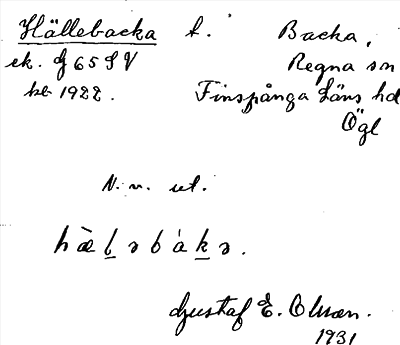 Hällebacka t. Backa,
ek. J 65 S V Regna sn
kb 1922. Finspånga Läns hd
Ögl
N. m. ut.
hæ̀l̲əbák̲ə.
Gustaf E. Olsson.
1931